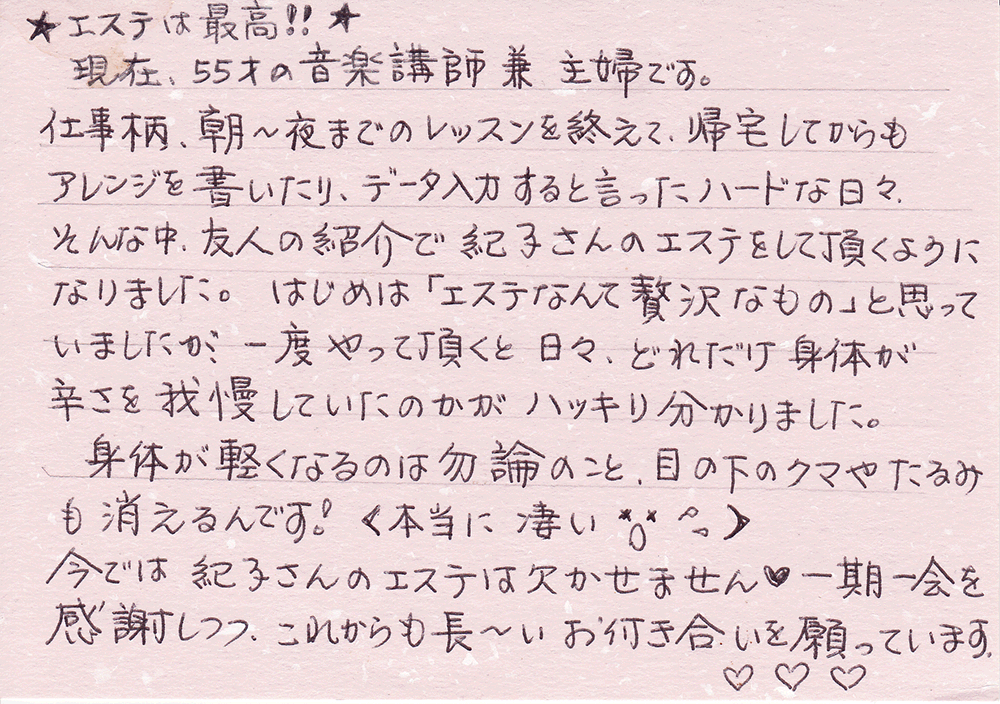 ★エステは最高!!★
現在、55才の音楽講師兼 主婦です。
仕事柄、朝〜夜までのレッスンを終えて、帰宅してからも
アレンジを書いたり、データ入力すると言ったハードな日々、
そんな中、友人の紹介で紀子さんのエステをして頂くように
なりました。 はじめは「エステなんて贅沢なもの」と思って
いましたが、一度やって頂くと日々、どれだけ身体が
辛さを我慢していたのかがハッキリ分かりました。
身体が軽くなるのは勿論のこと、目の下のクマやたるみ
も消えるんです! (本当に凄い *o* ^。)
今では紀子さんのエステは欠かせません♥ 一期一会を
感謝しつつ、これからも長〜いお付き合いを願っています。
♡ ♡ ♡